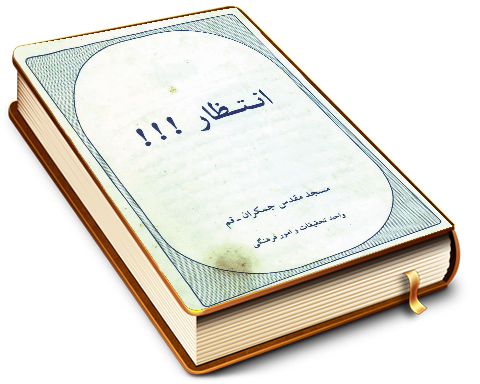 انتظار !!!
مسجد مقدس جمکران - قم
واحد تحقیقات و امور فرهنگی